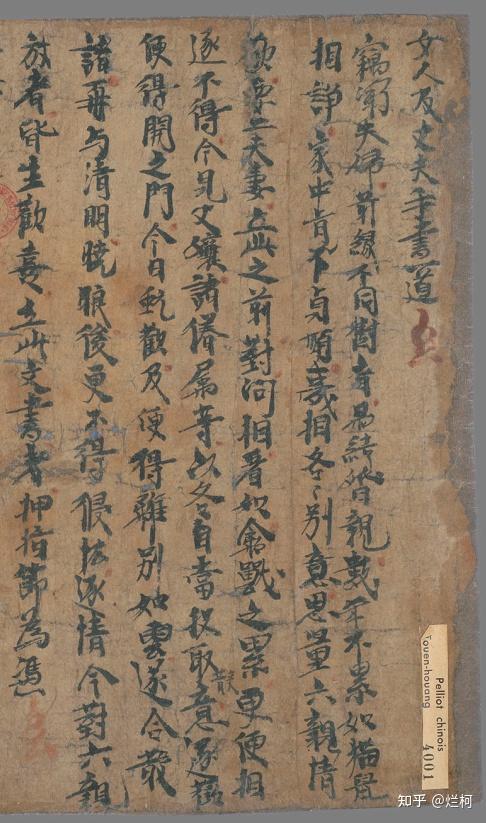 女人及丈夫手書一道
竊聞夫婦前緣不同樹者易結婚親數年不累如猫鼠
相諍家中肯不貞順義相各々別意思量六親情
二夫妻立此之前對問相看如禽獸之累更便相
逐不得今見父孃諸眷屬等以各自當投取散意逐歡
便得開之門今日甑歡及便得離別如雲遂合散
諸再与清明曉眼後更不得侵恡逐情今對六親
放者皆生歡喜立此文書者押指節為憑
Pelliot chinois
Touen-houang
4001
知乎 @烂柯